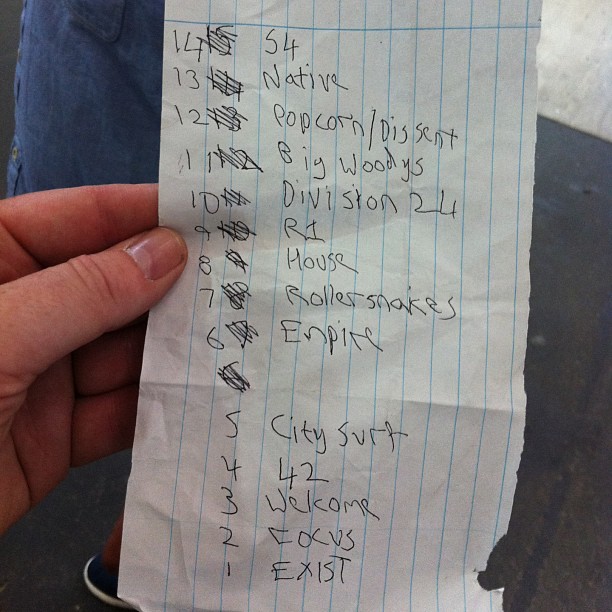 14 54
13 Native
12 Popcorn/Dissent
11 Big Woodys
10 Division 24
9 R1
8 House
7 Rollersnakes
6 Empire
5 City Surf
4 42
3 Welcome
2 FOCUS
1 EXIST